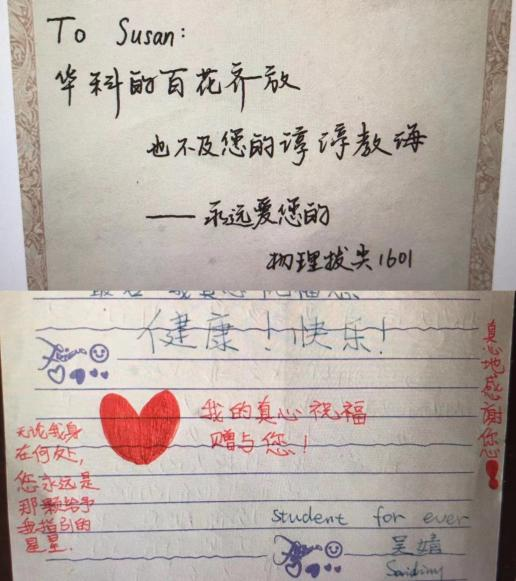 To Susan:
华科的百花齐放
也不及您的谆谆教诲
——永远爱您的
物理拔尖1601
健康!快乐!
真心地感谢您!
我的真心祝福
赠与您!
无论我身
在何处,
您永远是
那颗给予
我指引的
星星.
student for ever
吴婧